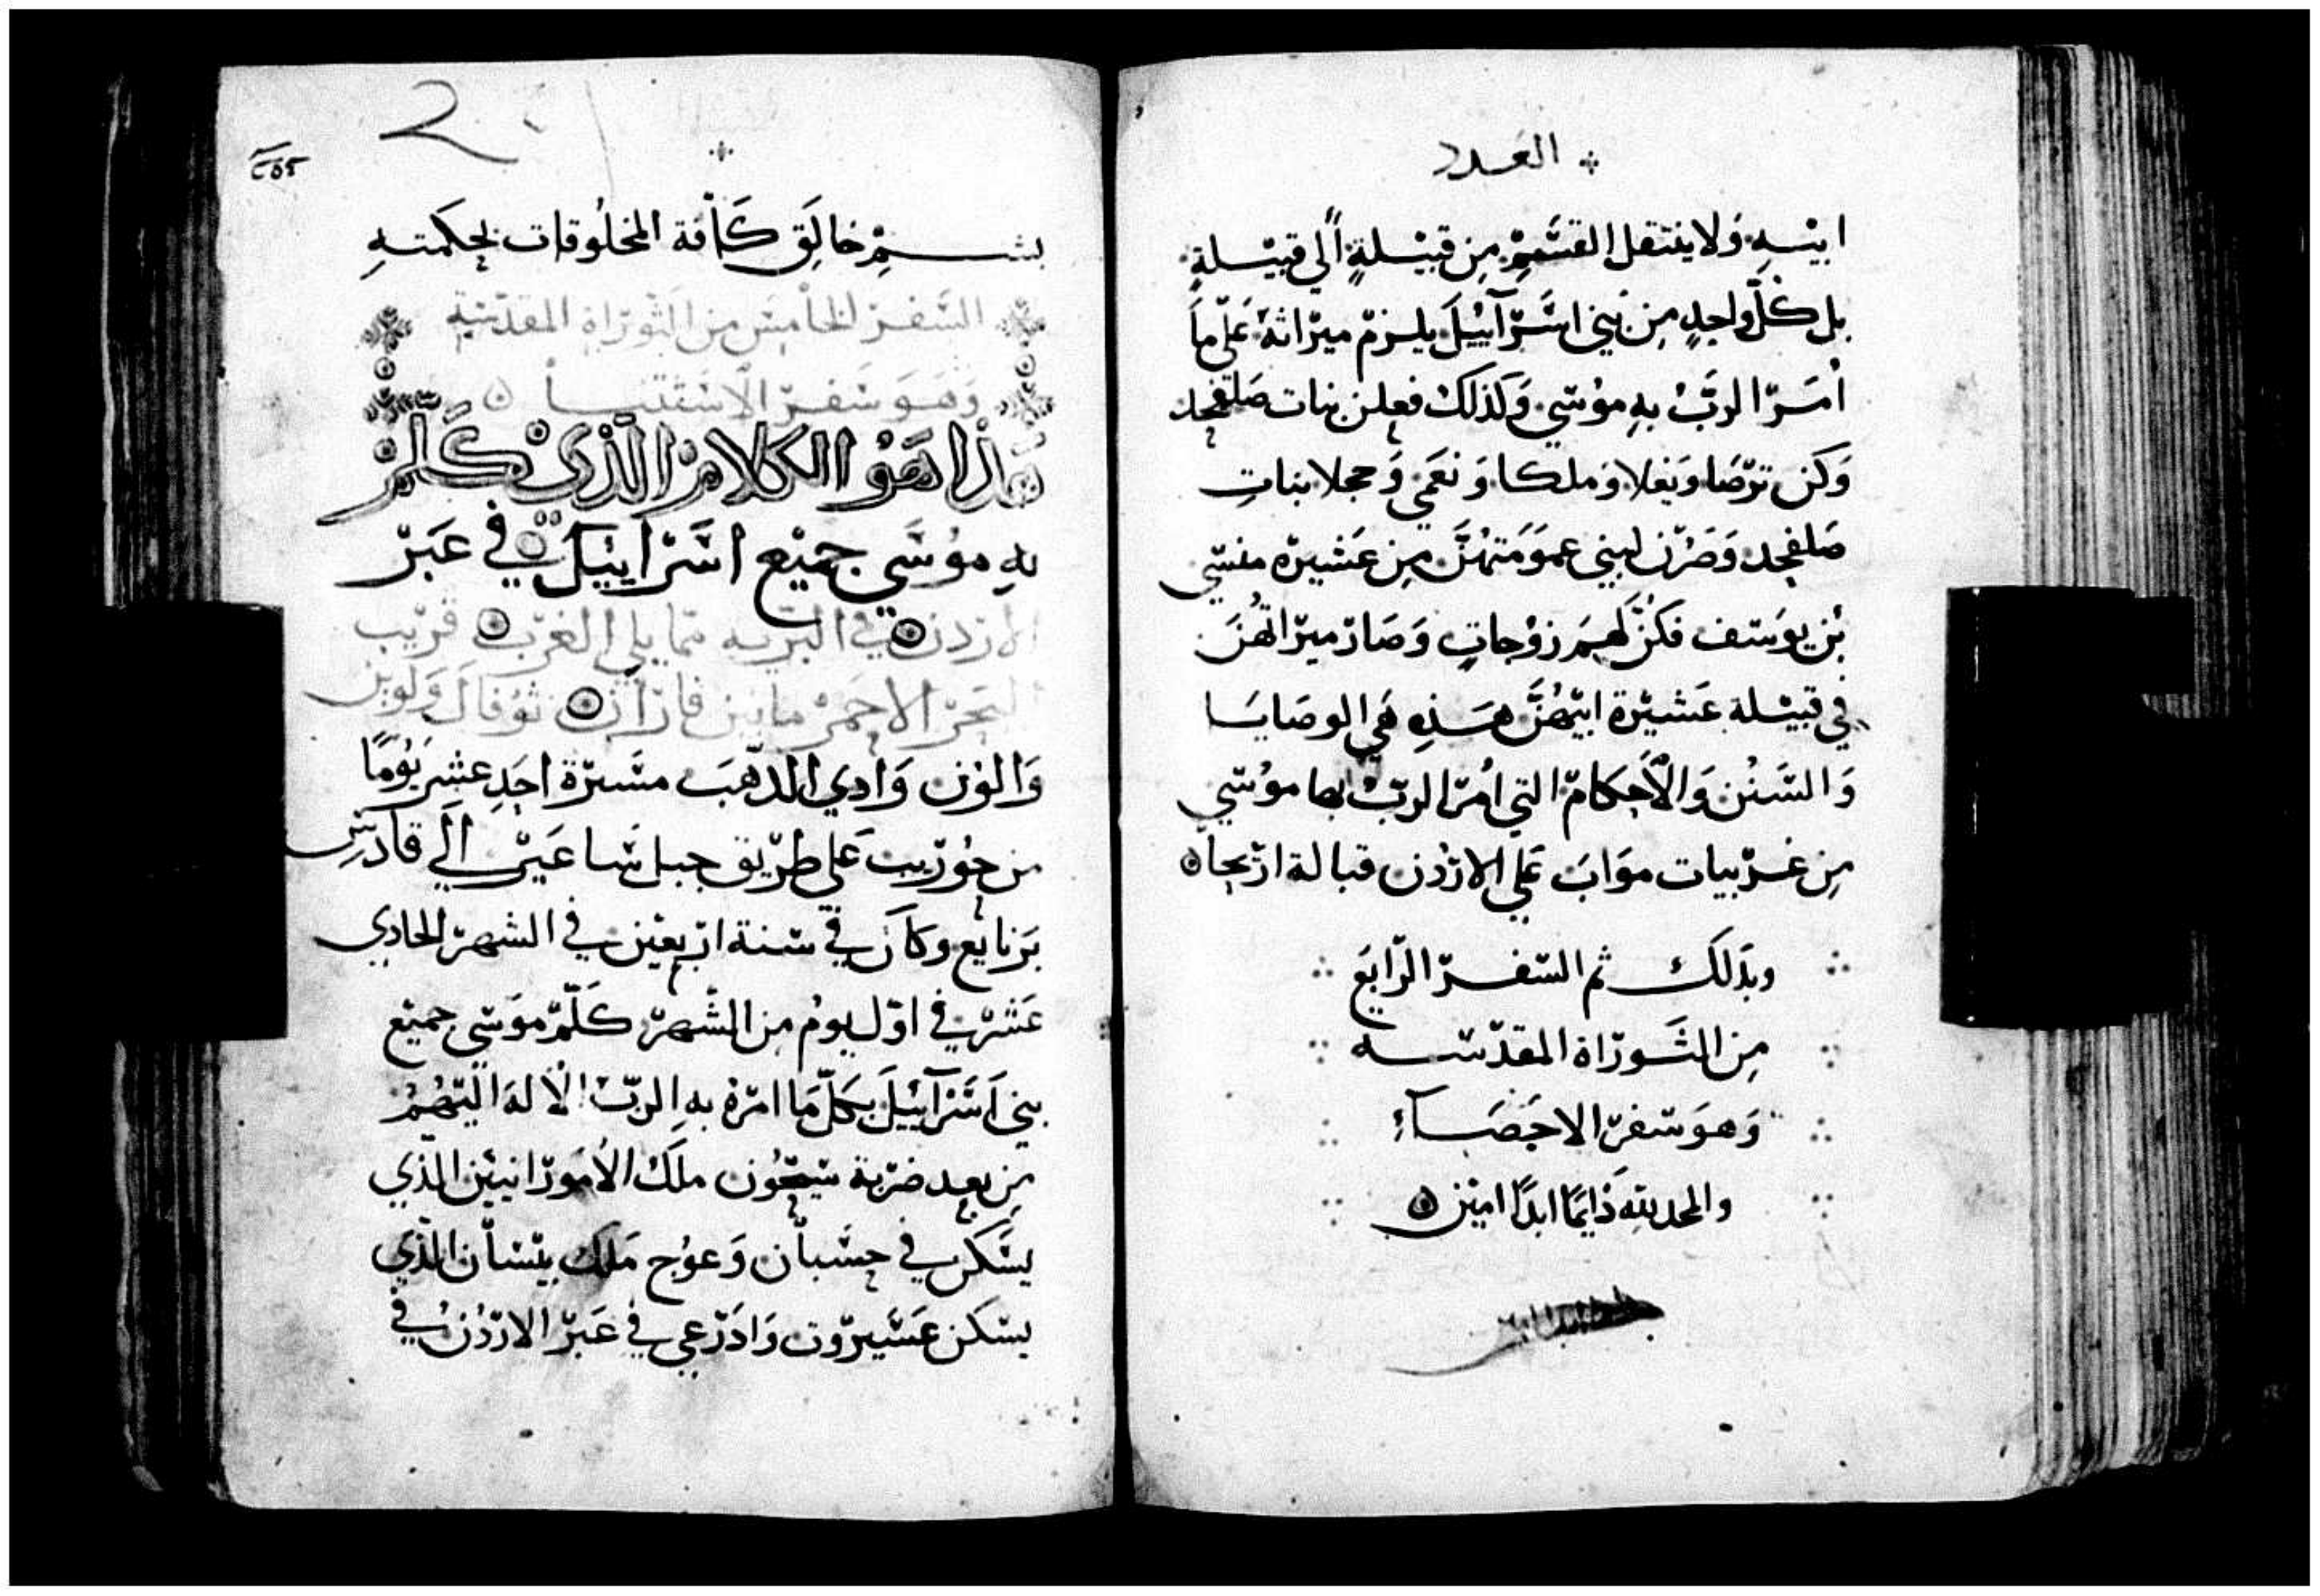 العدد
ابيه ولا ينتقل القسم من قبيلة الي قبيلة
بل كل واحد من بني اسرآييل يلزم ميراثه علي ما
امر الرب به موسي وكذلك فعلن بنات صلفحد
وكن ترصا ونغلا وملكا ونعمي وحجلا بنات
صلفحد وصرن لبني عمومتهن من عشيرة منسي
بن يوسف فكن لهم زوجات وصار ميراثهن
في قبيلة عشيرة ابيهن هذه هي الوصايا
والسنن والأحكام التي امر الرب بها موسي
من غربيات مواب علي الاردن قبالة اريحا
وبذلك تم السفر الرابع
من التوراة المقدسه
وهو سفر الاحصآء
والحمد لله دايمًا ابدًا امين
2
بسم خالق كافة المخلوقات بحكمته
السفر الخامس من التوراة المقدسة
وهو سفر الاستثنا
هذا هو الكلام الذي كلم
به موسي جميع اسراييل في عبر
الاردن في البريه مما يلي الغرب قريب
البحر الاحمر ما بين فاران ثوفال ولوبن
والون وادي الدهب مسيرة احد عشر يومًا
من حوريب علي طريق جبل ساعير الي قادس
برنايع وكان في سنة اربعين في الشهر الحادي
عشر في اول يوم من الشهر كلم موسي جميع
بني اسرآييل بكل ما امره به الرب الاله اليهم
من بعد ضربة سيحون ملك الامورانيين الذي
يسكن في حسبان وعوج ملك بيسان الذي
يسكن عسيروت وادرعي في عبر الاردن في